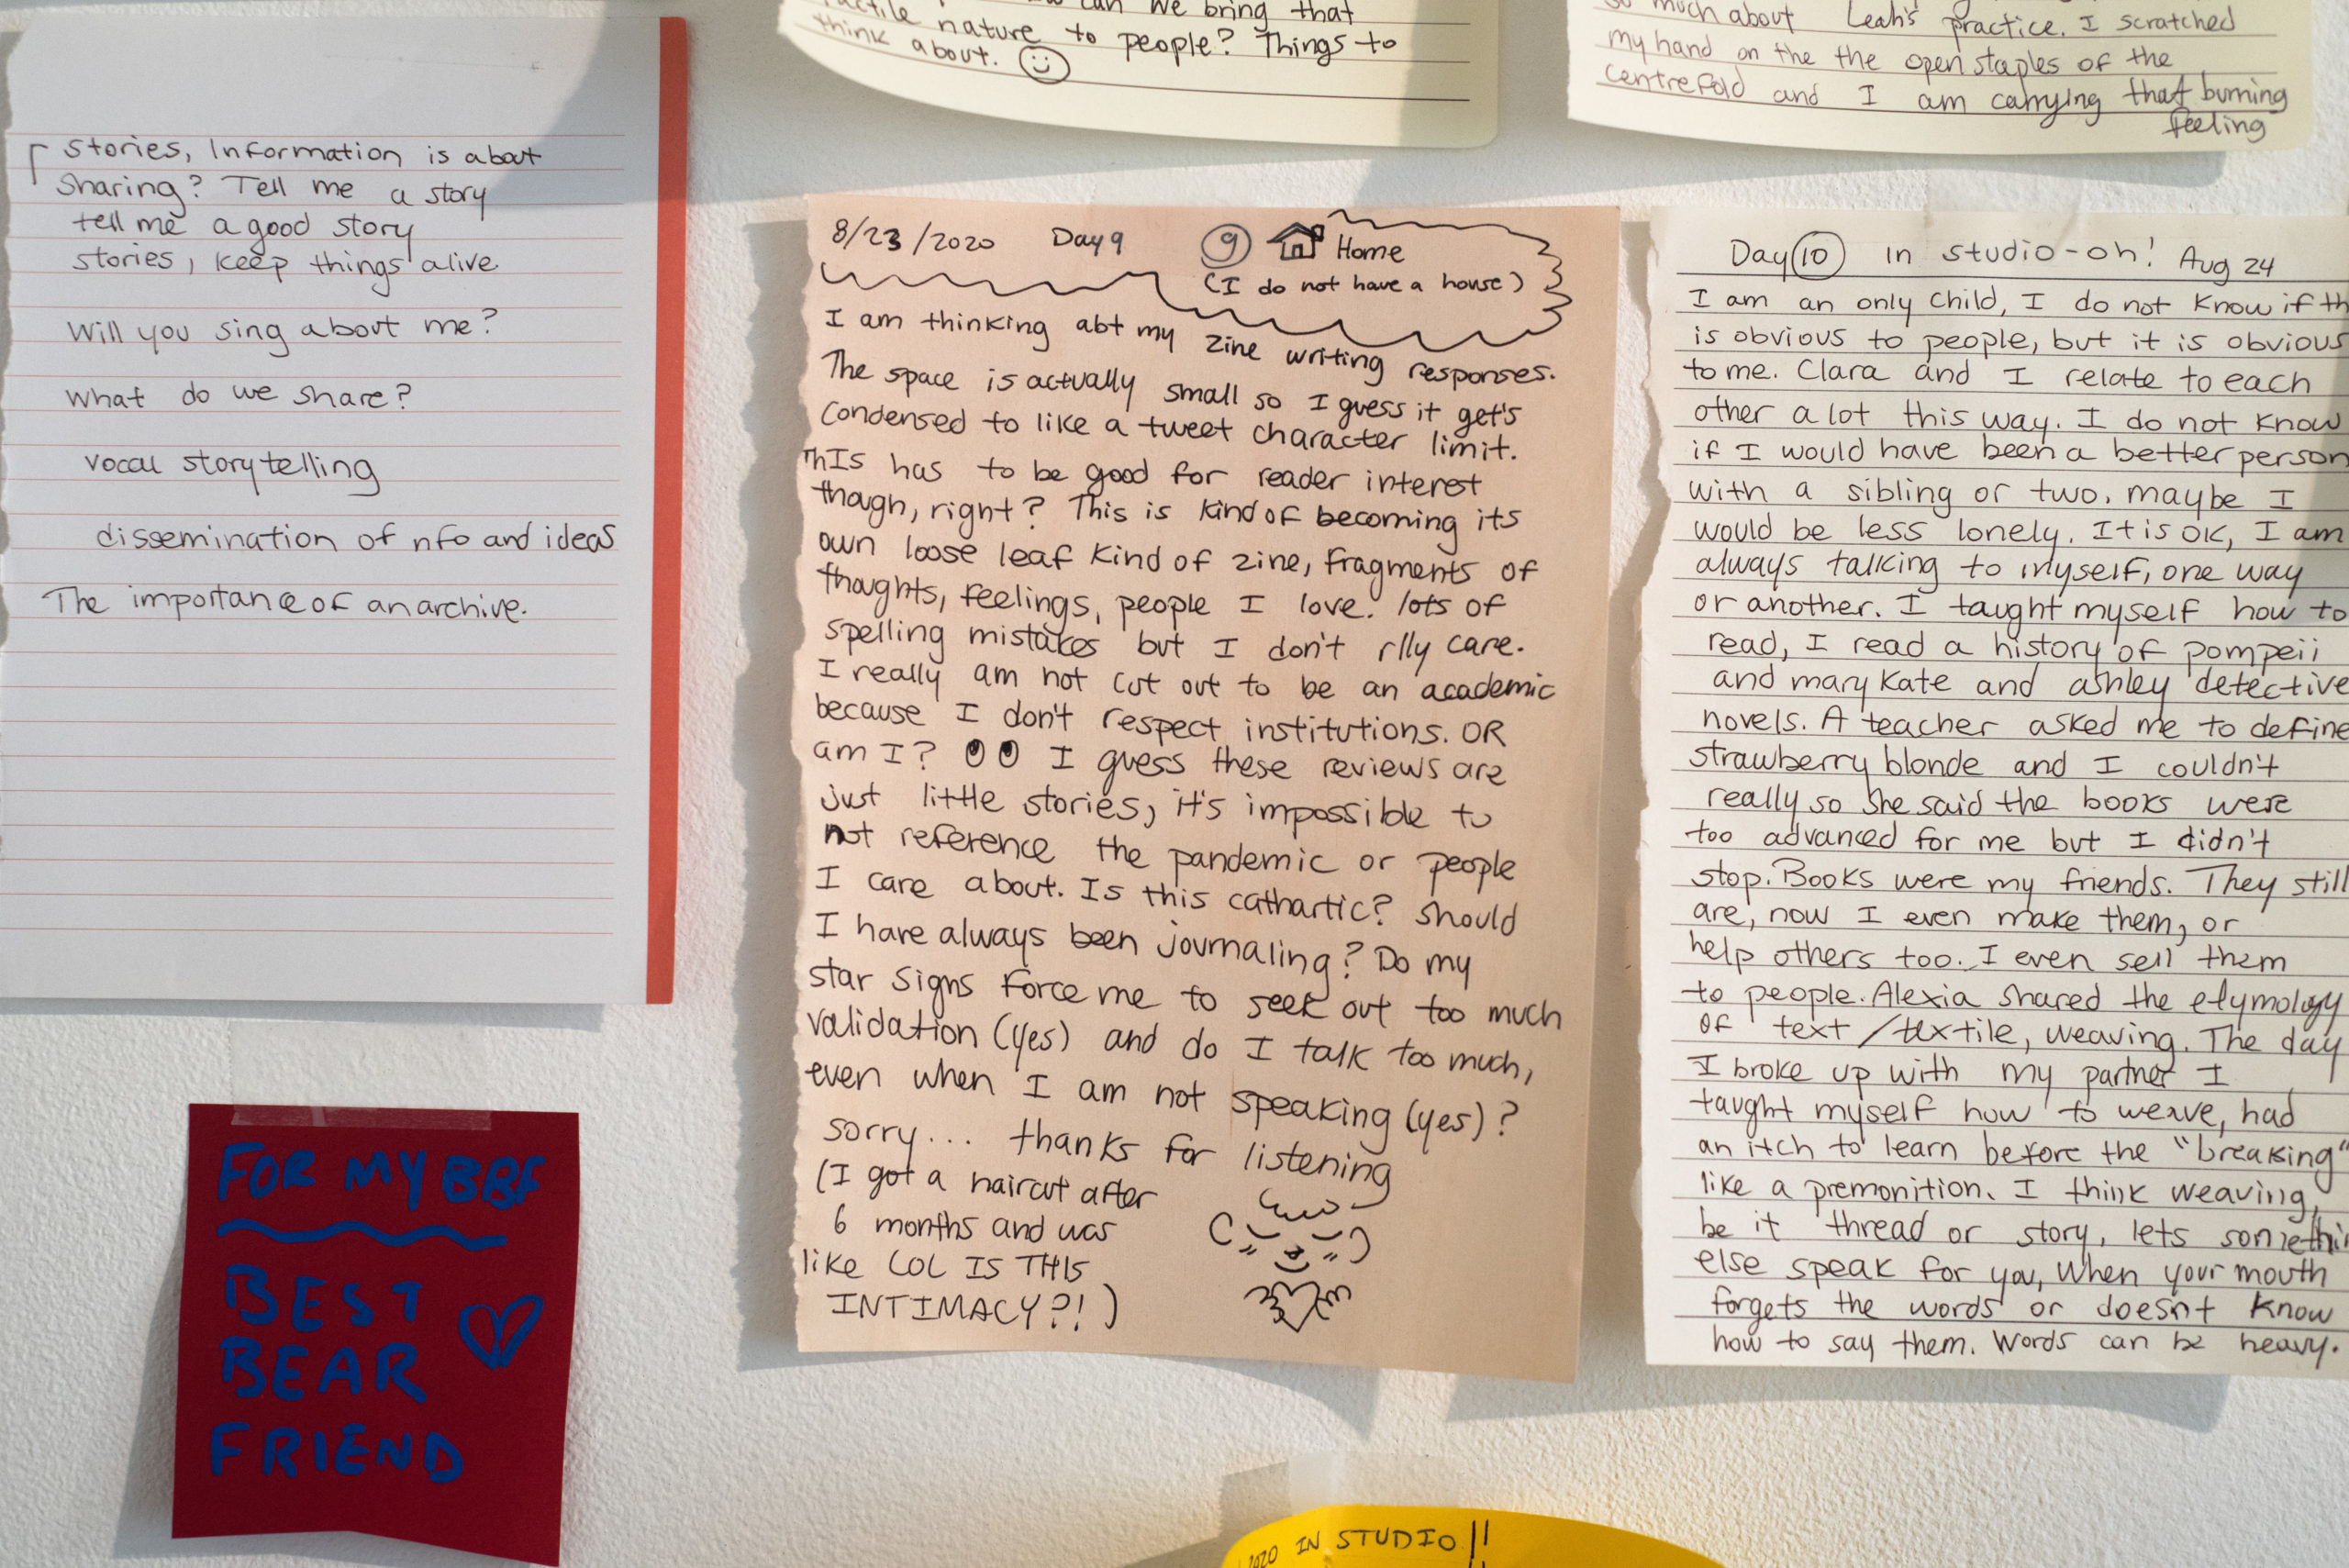 can we bring that
tactile nature to people? Things to
think about.
so much about Leah's practice. I scratched
my hand on the the open staples of the
centrefold and I am carrying that burning
feeling
stories, Information is about
sharing? Tell me a story
tell me a good story
stories, keep things alive
Will you sing about me?
What do we share?
vocal storytelling
dissemination of nfo and ideas
The importance of an archive.
8/23/2020 Day 9 9 Home
(I do not have a house)
I am thinking abt my zine writing responses.
The space is actually small so I guess it get's
condensed to like a tweet character limit.
ThIs has to be good for reader interest
though, right? This is kind of becoming its
own loose leaf kind of zine, fragments of
thoughts, feelings, people I love. lots of
spelling mistakes but I don't rlly care.
I really am not cut out to be an academic
because I don't respect institutions. OR
am I? I guess these reviews are
just little stories, it's impossible to
not reference the pandemic or people
I care about. Is this cathartic? Should
I have always been journaling? Do my
star signs force me to seek out too much
validation (yes) and do I talk too much,
even when I am not speaking (yes)?
sorry... thanks for listening
(I got a haircut after
6 months and was
like LOL IS THIS
INTIMACY?!)
Day 10 in studio-oh! Aug 24
I am an only child, I do not know if th
is obvious to people, but it is obvious
to me. Clara and I relate to each
other a lot this way. I do not know
if I would have been a better person
with a sibling or two. maybe I
would be less lonely. It is ok, I am
always talking to myself, one way
or another. I taught myself how to
read, I read a history of pompeii
and mary kate and ashley detective
novels. A teacher asked me to define
strawberry blonde and I couldn't
really so she said the books were
too advanced for me but I didn't
stop. Books were my friends. They still
are, now I even make them, or
help others too. I even sell them
to people. Alexia shared the etymology
of text/textile, weaving. The day
I broke up with my partner I
taught myself how to weave, had
an itch to learn before the "breaking"
like a premonition. I think weaving,
be it thread or story, lets somethi
else speak for you, when your mouth
forgets the words or doesnt know
how to say them. Words can be heavy.
FOR MY BBF
BEST
BEAR
FRIEND
2020 IN STUDIO!!